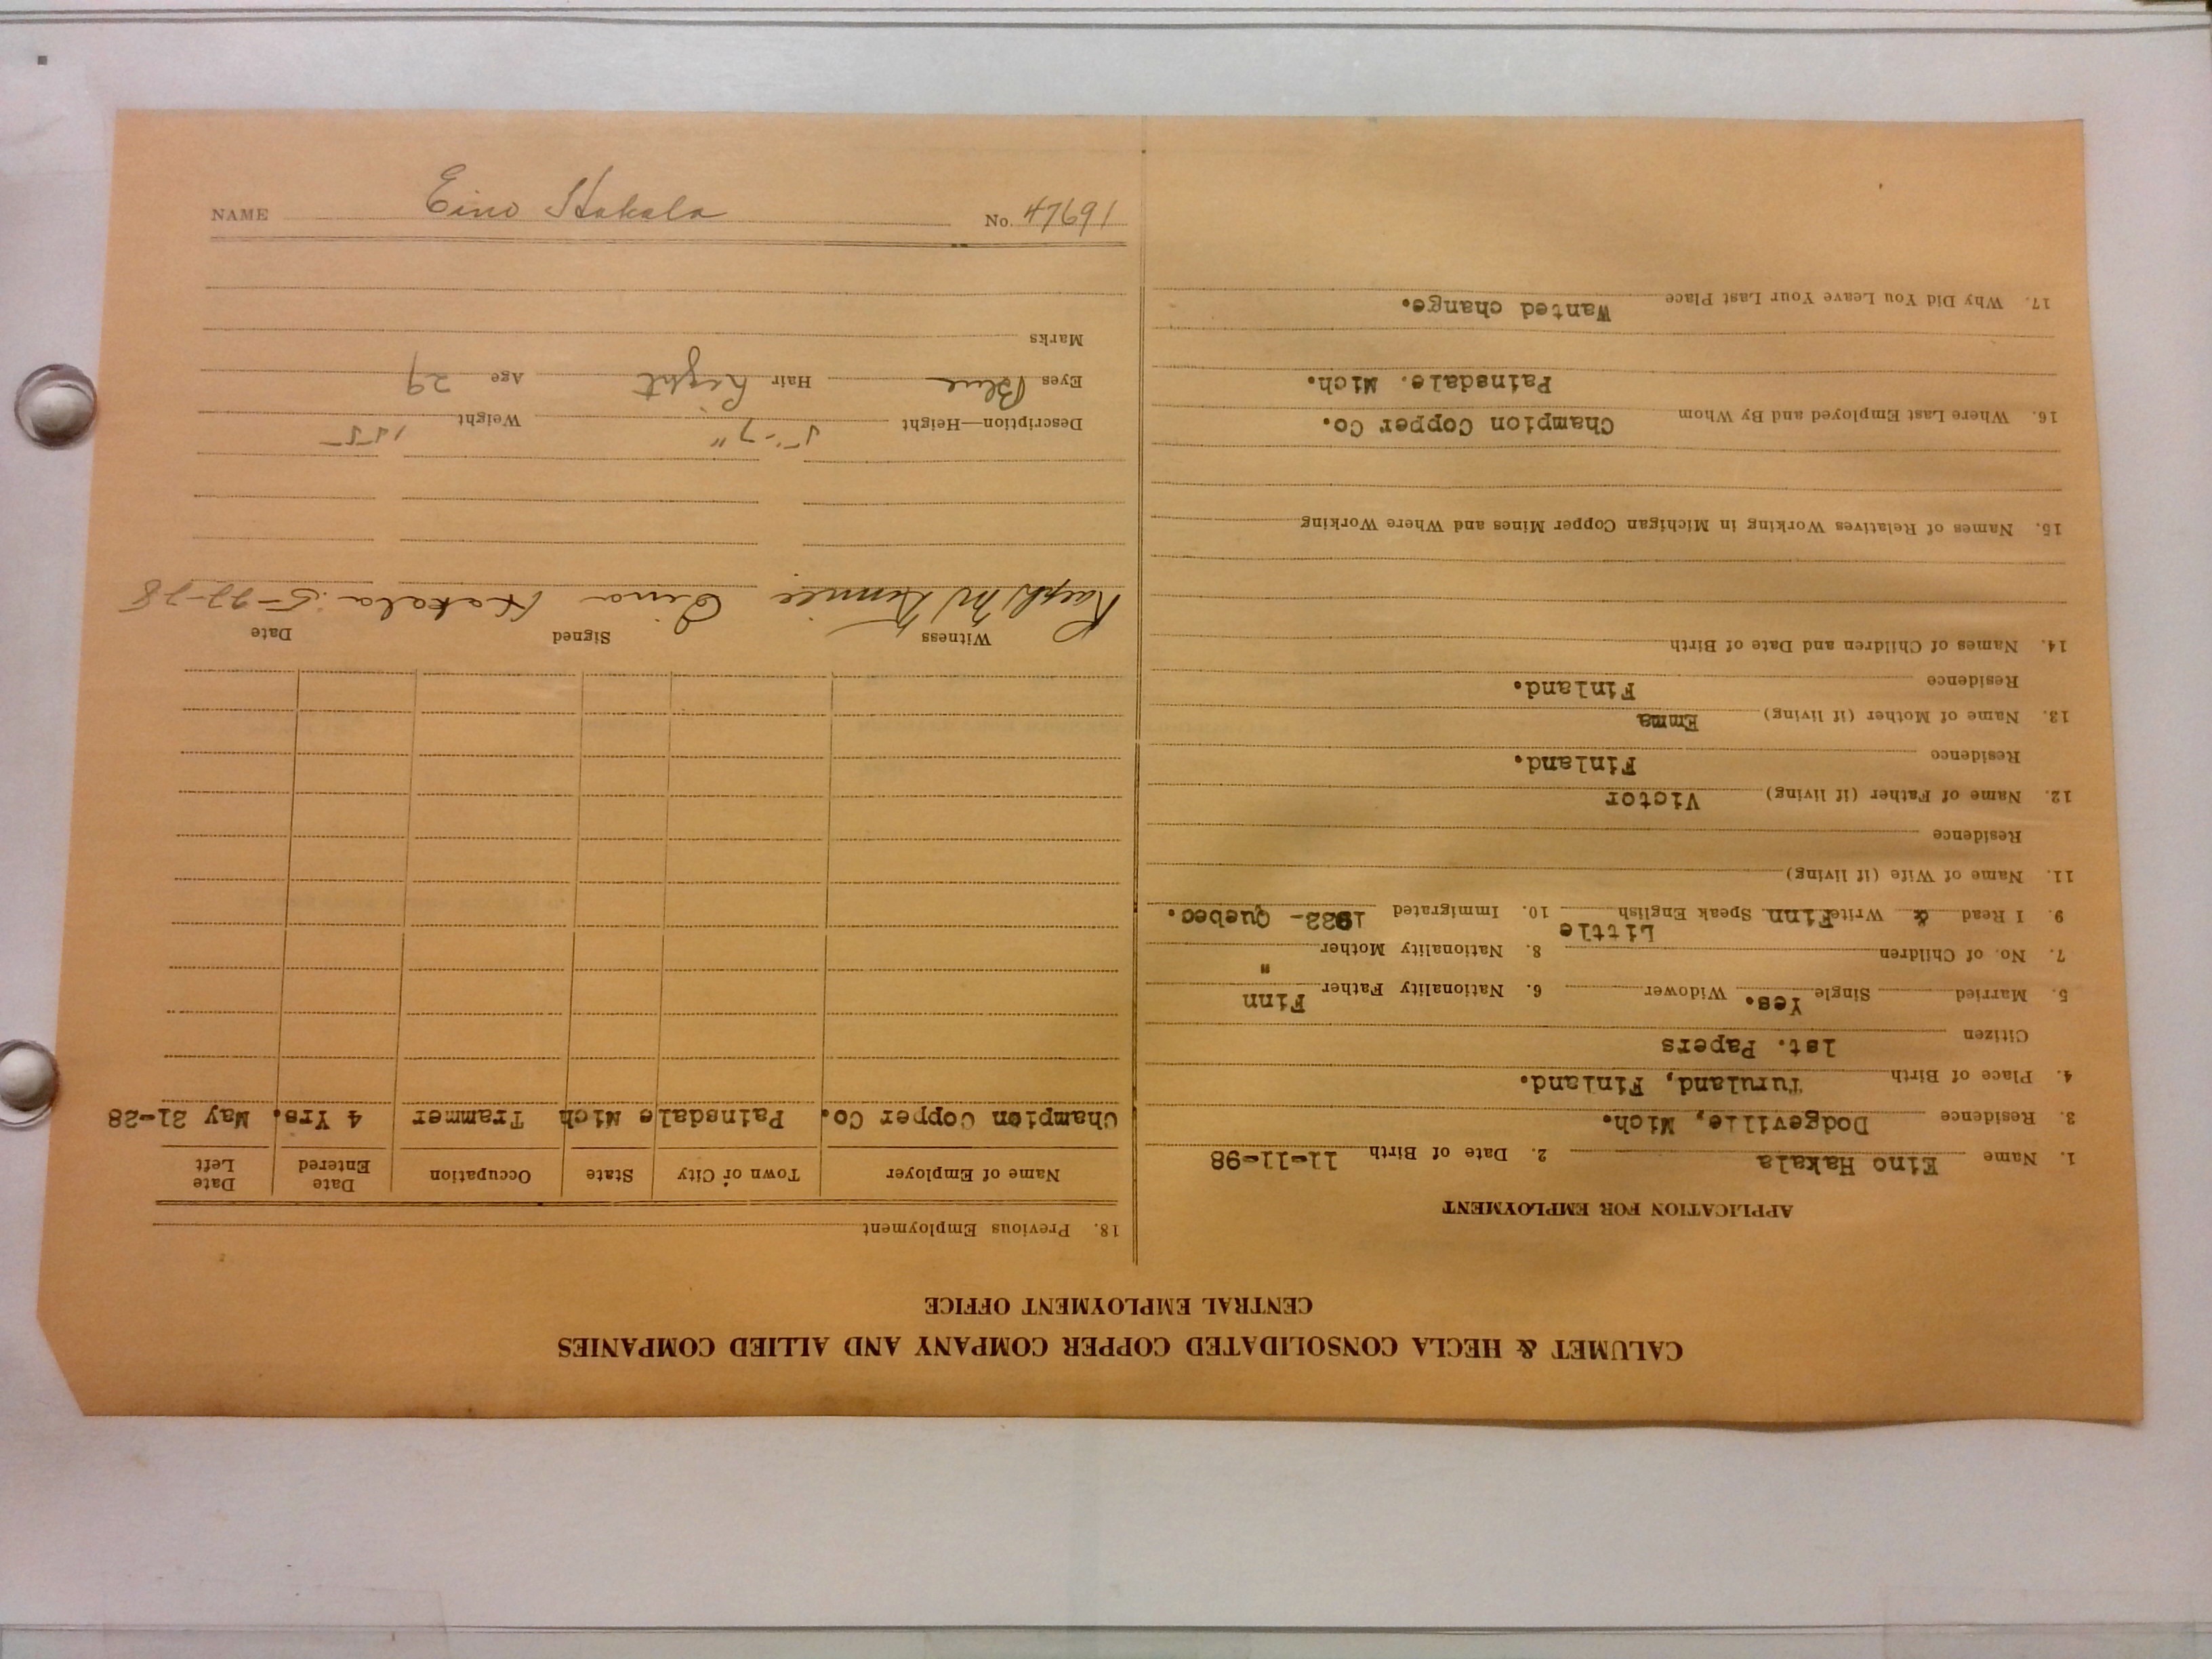 CALUMET & HECLA CONSOLIDATED COPPER COMPANY AND ALLIED COMPANIES
CENTRAL EMPLOYMENT OFFICE
APPLICATION FOR EMPLOYMENT
1. Name Eino Hakala 2. Date of Birth 11-11-98
3. Residence Dodgeville, Mich.
4. Place of Birth Turuland, Finland.
Citizen 1st. Papers
5. Married Single Yes. Widower 6. Nationality Father Finn
7. No. of Children 8. Nationality Mother "
9. I Read & Write Finn Speak English Little 10. Immigrated Quebec.
11. Name of Wife (if living)
Residence
12. Name of Father (if living) Victor
Residence Finland.
13. Name of Mother (if living) Emma
Residence Finland.
14. Names of Children and Date of Birth
15. Names of Relatives Working in Michigan Copper Mines and Where Working
16. Where Last Employed and By Whom Champion Copper Co.
Painsdale. Mich.
17. Why Did You Leave Your Last Place Wanted change.
18. Previous Employment
Name of Employer Town or City State Occupation Date Entered Date Left
Champion Copper Co. Painsdale Mich Trammer 4 Yrs. May 21-28
Witness Signed Date
Eino Hakala 5-22-28
Description—Height 5'-7" Weight 155
Eyes Blue Hair Light Age 29
Marks
NAME Eino Hakala No. 47691